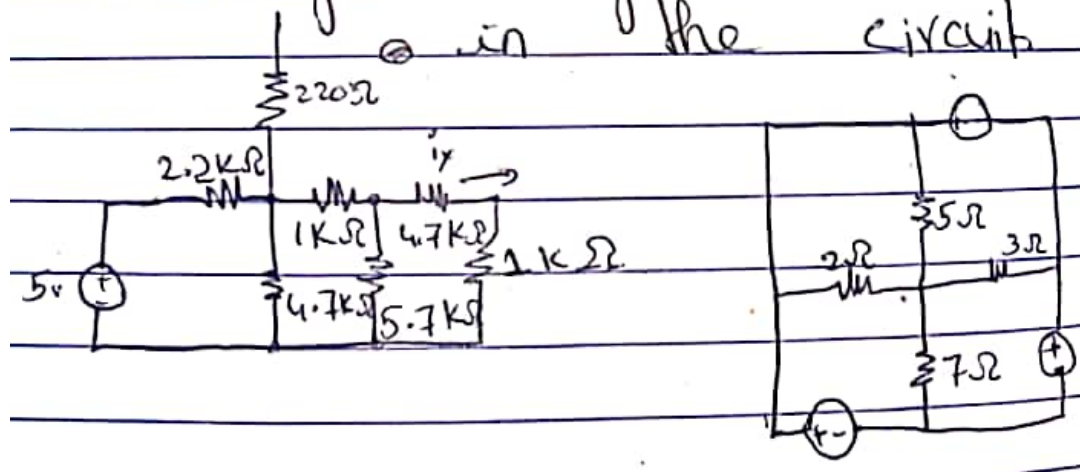 in the circuit
220Ω
2.2KΩ
ix
1KΩ
4.7KΩ
1KΩ
5v
4.7KΩ
5.7KΩ
5Ω
2Ω
3Ω
7Ω